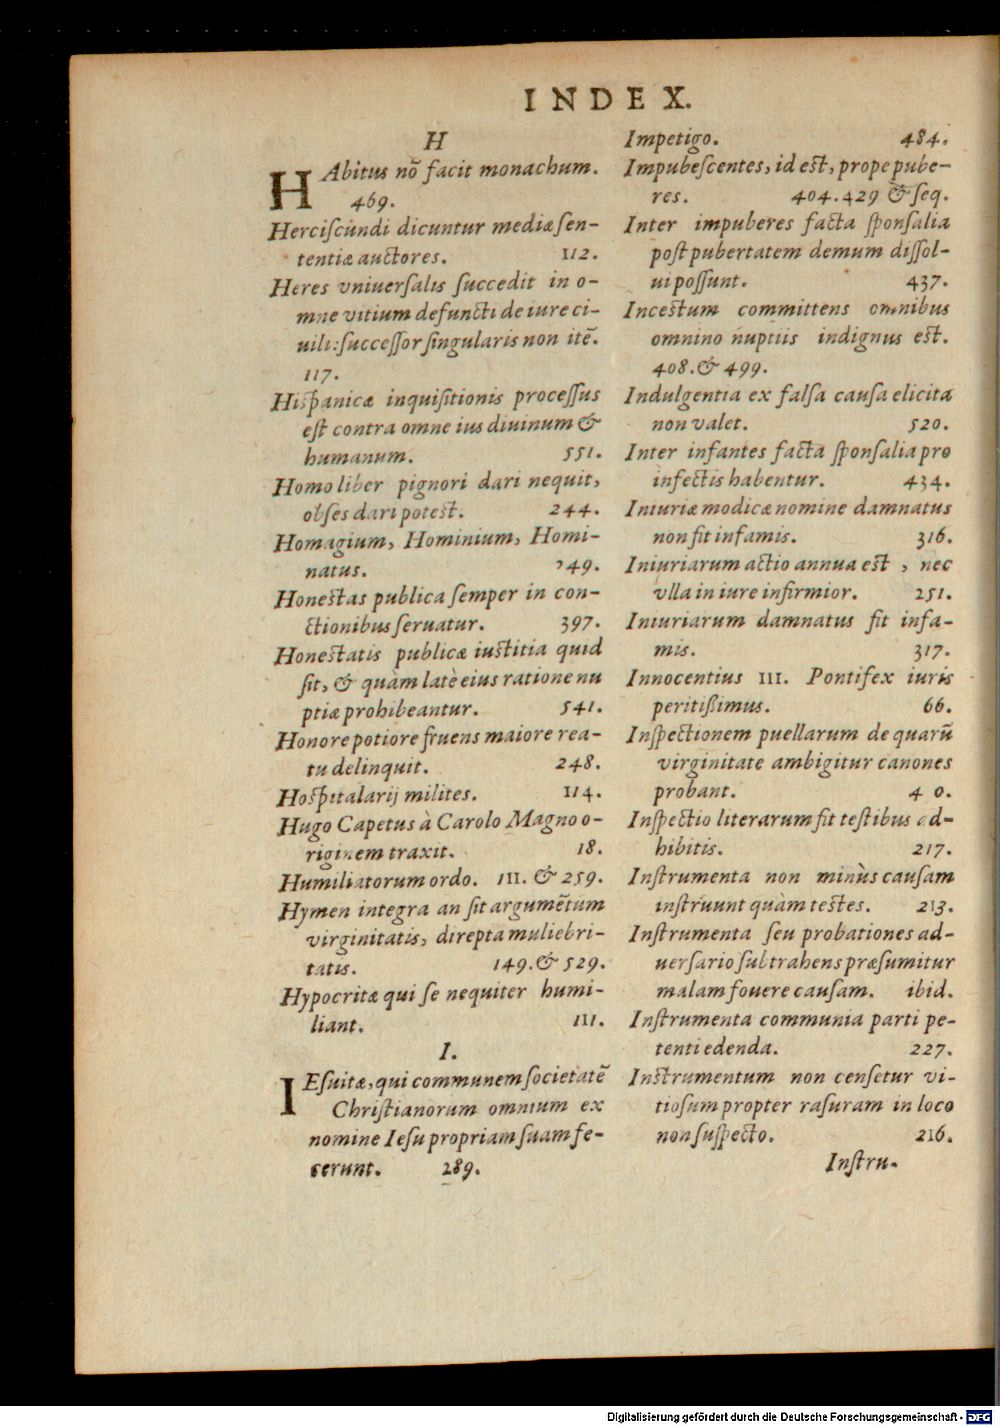 INDEX.
H
HAbitus nō facit monachum.
469.
Herciſcundi dicuntur mediæ ſen-
tentiæ auctores. 112.
Heres vniuerſalis ſuccedit in o-
mne vitium defuncti de iure ci-
uili: ſucceſſor ſingularis non itē.
117.
Hiſpanicæ inquiſitionis proceſſus
eſt contra omne ius diuinum &
humanum. 551.
Homo liber pignori dari nequit,
obſes dari poteſt. 244.
Homagium, Hominium, Homi-
natus. 249.
Honeſtas publica ſemper in con-
ctionibus ſeruatur. 397.
Honeſtatis publicæ iuſtitia quid
ſit, & quàm latè eius ratione nu
ptiæ prohibeantur. 541.
Honore potiore fruens maiore rea-
tu delinquit. 248.
Hoſpitalarij milites. 114.
Hugo Capetus à Carolo Magno o-
riginem traxit. 18.
Humiliatorum ordo. 111. & 259.
Hymen integra an ſit argumētum
virginitatis, direpta muliebri-
tatis. 149. & 529.
Hypocritæ qui ſe nequiter humi-
liant. 111.
I.
IEſuitæ, qui communem ſocietatē
Chriſtianorum omnium ex
nomine Ieſu propriam ſuam fe-
cerunt. 289.
Impetigo. 484.
Impubeſcentes, id eſt, prope pube-
res. 404. 429 & ſeq.
Inter impuberes facta ſponſalia
poſt pubertatem demum diſſol-
ui poſſunt. 437.
Inceſtum committens omnibus
omnino nuptiis indignus eſt.
408. & 499.
Indulgentia ex falſa cauſa elicita
non valet. 520.
Inter infantes facta ſponſalia pro
infectis habentur. 434.
Iniuriæ modicæ nomine damnatus
non fit infamis. 316.
Iniuriarum actio annua eſt, nec
vlla in iure infirmior. 251.
Iniuriarum damnatus fit infa-
mis. 317.
Innocentius III. Pontifex iuris
peritißimus. 66.
Inſpectionem puellarum de quarū
virginitate ambigitur canones
probant. 4 0.
Inſpectio literarum fit teſtibus ad-
hibitis. 217.
Inſtrumenta non minùs cauſam
inſtruunt quàm teſtes. 213.
Inſtrumenta ſeu probationes ad-
uerſario ſubtrahens præſumitur
malam fouere cauſam. ibid.
Inſtrumenta communia parti pe-
tenti edenda. 227.
Inſtrumentum non cenſetur vi-
tioſum propter raſuram in loco
non ſuſpecto. 216.
Inſtru-
Digitalisierung gefördert durch die Deutsche Forschungsgemeinschaft - DFG